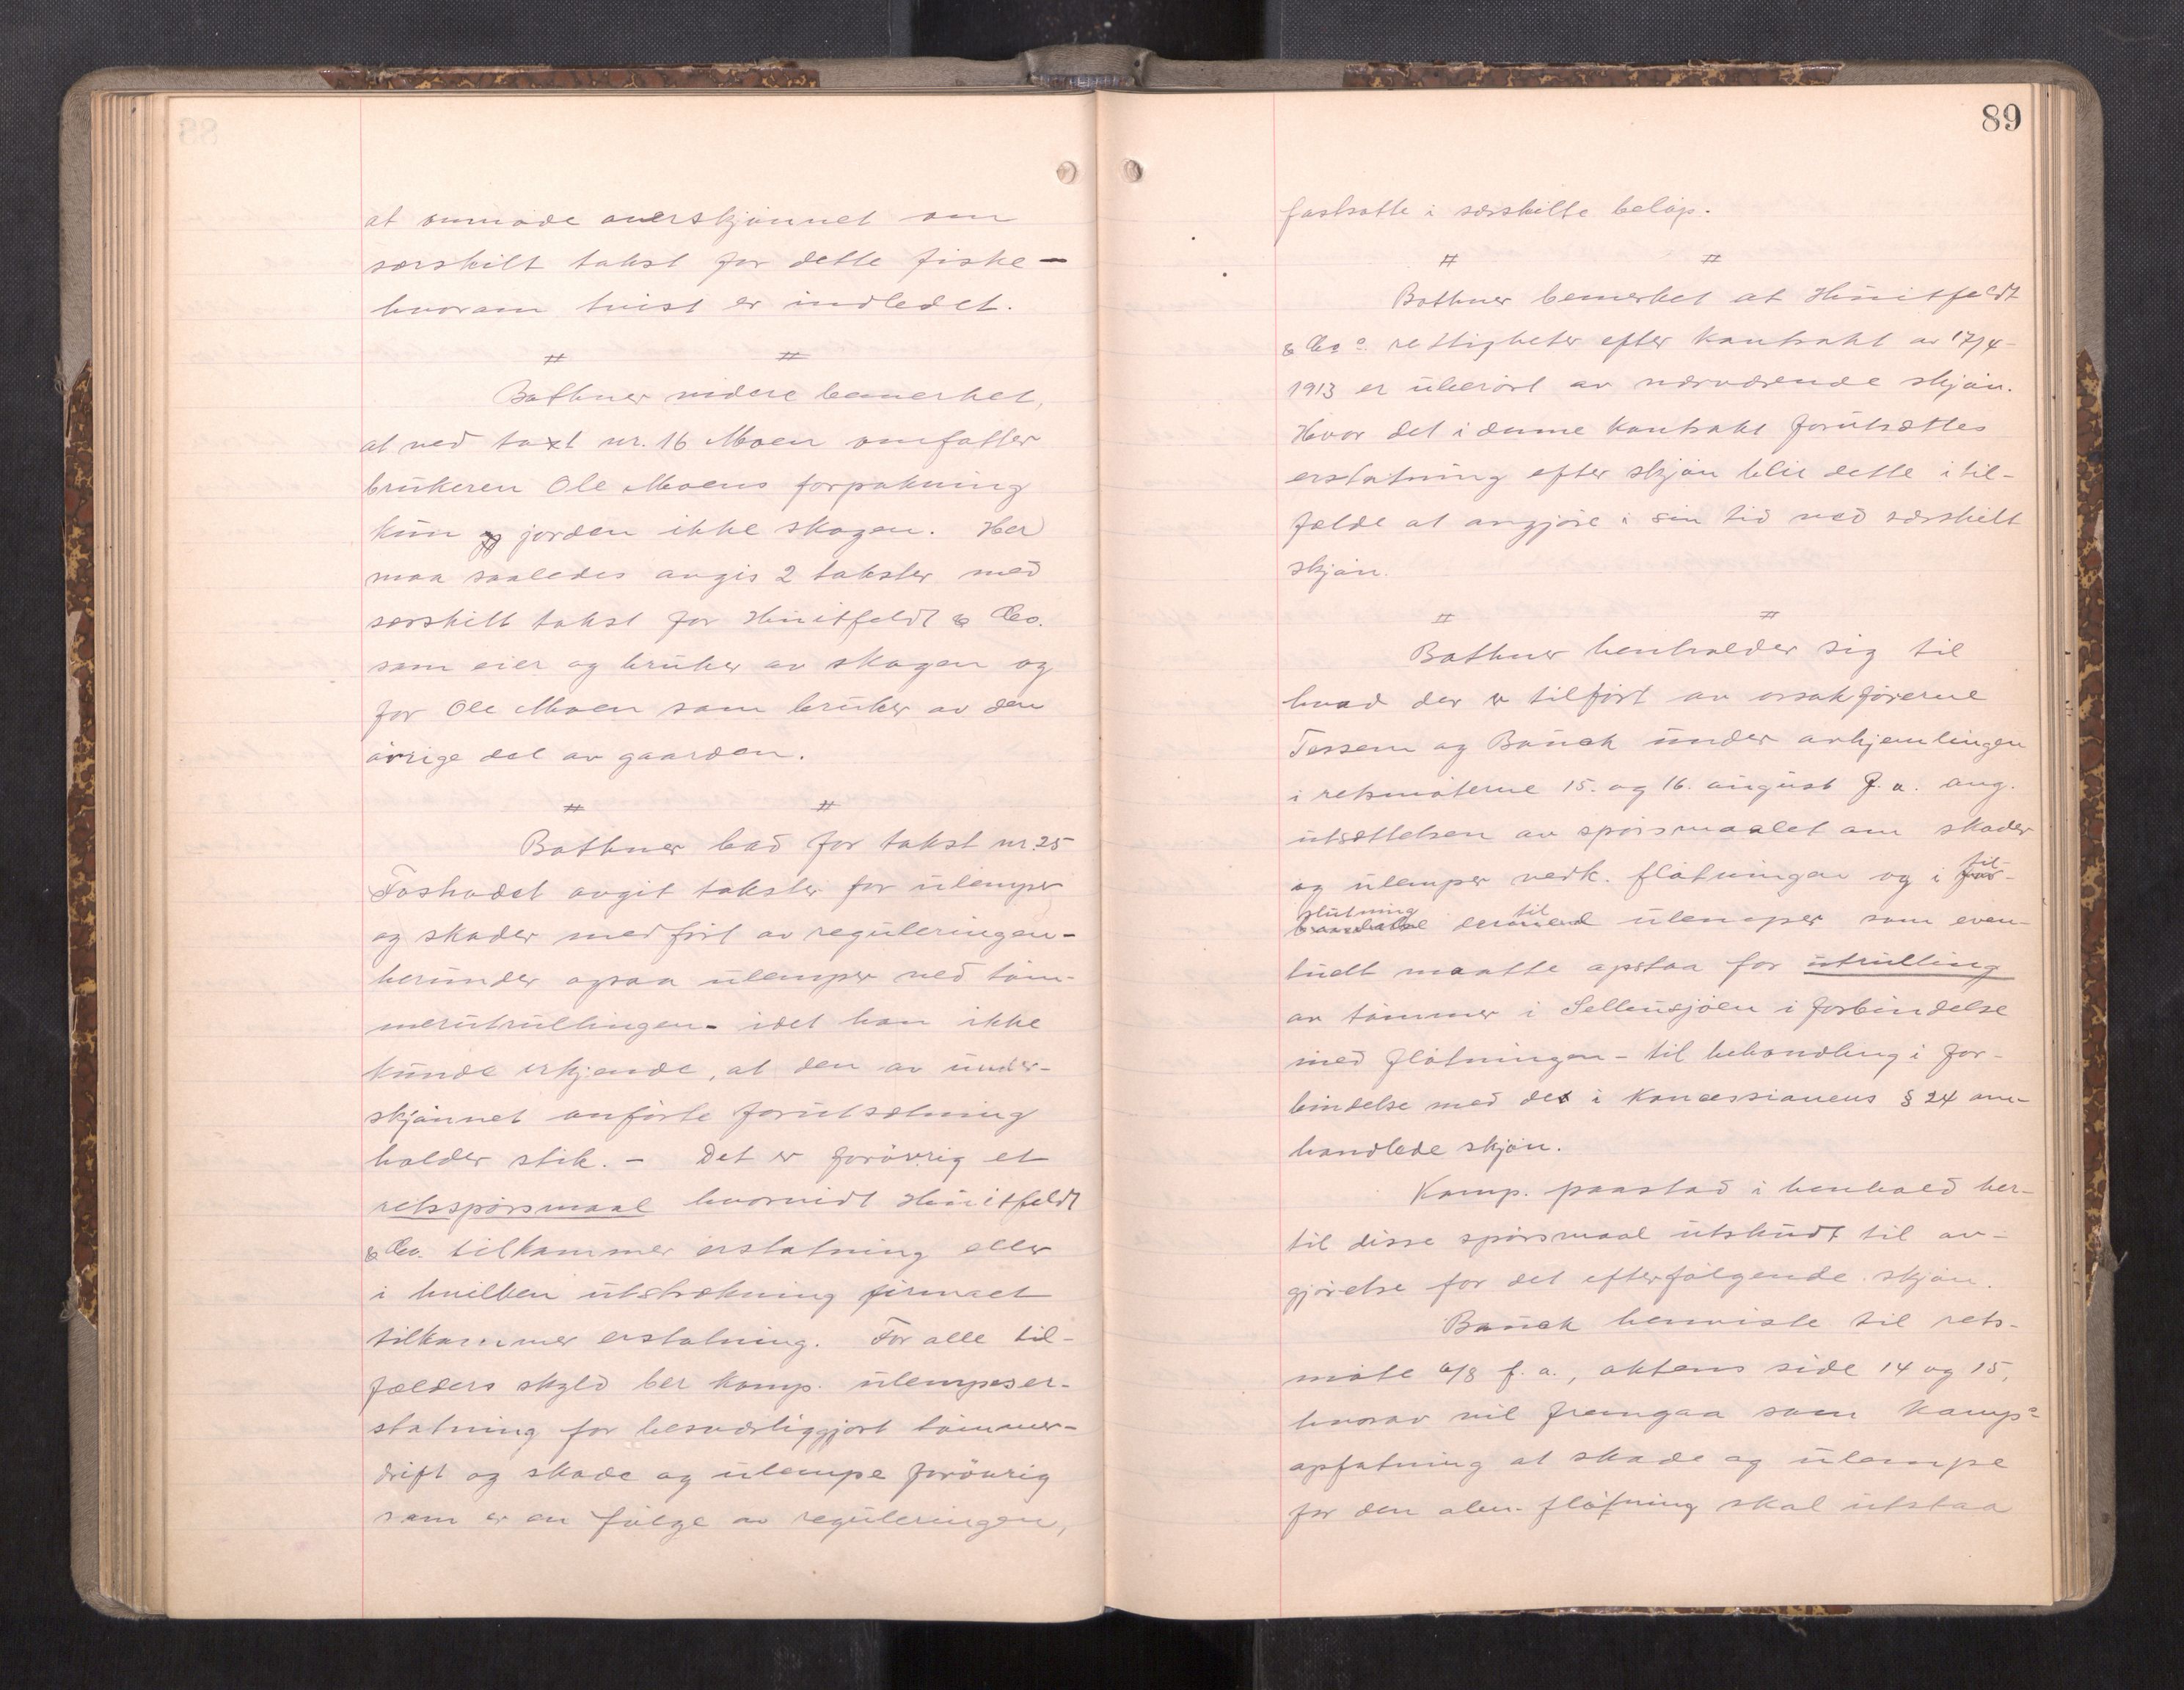 at anmode overskjønnet om
særskilt takst for dette fiske –
hvorom tvist er indledet.
# #
Bothner videre bemerket,
at ved taxt nr. 16 Moen omfatter
brukeren Ole Moens forpakning
kun jorden ikke skogen. Her
maa saaledes avgis 2 takster med
særskilt takst for Huitfeldt & Co.
som eier og bruker av skogen og
for Ole Moen som bruker av den
øvrige del av gaarden.
# #
Bothner bad for takst nr. 25
Foshodet avgit takster for ulemper
og skader medført av reguleringen –
herunder ogsaa ulemper ved tøm-
merutrullingen – idet han ikke
kunde erkjende, at den av under-
skjønnet anførte forutsætning
holder stik. – Det er forøvrig et
retsspørsmaal hvorvidt Huitfeldt
& Co. tilkommer erstatning eller
i hvilken utstrækning firmaet
tilkommer erstatning. For alle til-
fælders skyld ber komp. ulempeser-
statning for besværliggjort tømmer-
drift og skade og ulempe forøvrig
som er en følge av reguleringen,
89
fastsatte i særskilte beløp.
# #
Bothner bemerket at Huitfeldt
& Cos. rettigheter efter kontrakt av 17/4-
1913 er uberørt av nærværende skjøn.
Hvor det i denne kontrakt forutsættes
erstatning efter skjøn blir dette i til-
fælde at avgjøre i sin tid ved særskilt
skjøn.
# #
Bothner henholder sig til
hvad der er tilført av orsakførerne
Tessem og Bauck under avhjemlingen
i retsmøterne 15. og 16. august f. a. ang.
utsættelsen av spørsmaalet om skader
og ulemper vedk. fløtningen og i til-
slutning dertil ulemper som even-
tuelt maatte opstaa for utrulling
av tømmer i Selbusjøen i forbindelse
med fløtningen – til behandling i for-
bindelse med det i koncessionens § 24 om-
handlede skjøn.
Komp. paastod i henhold her-
til disse spørsmaal utskudt til av-
gjørelse for det efterfølgende skjøn.
Bauck henviste til rets-
møte 6/8 f. a., aktens side 14 og 15,
hvorav vil fremgaa som komps.
opfatning at skade og ulempe
for den alm. fløtning skal utstaa